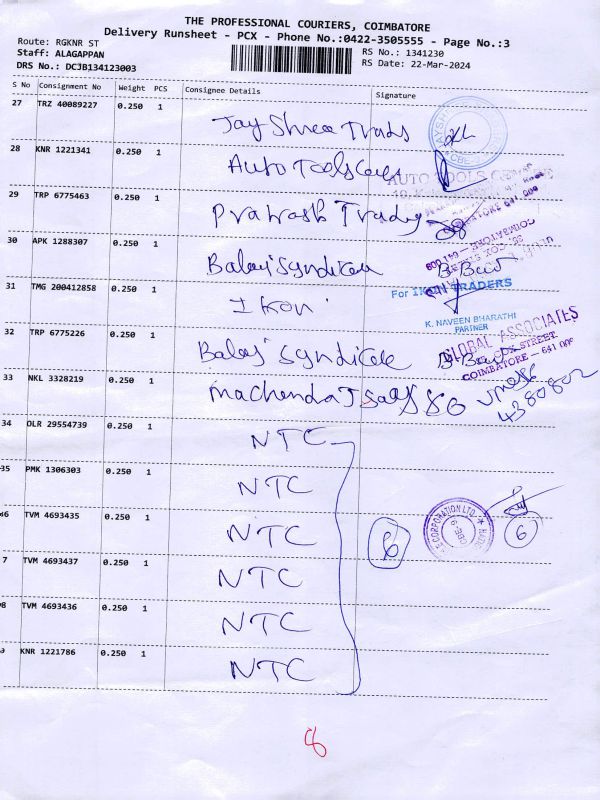 THE PROFESSIONAL COURIERS, COIMBATORE
Delivery Runsheet - PCX - Phone No.:0422-3505555 - Page No.:3
Route: RGKNR ST
Staff: ALAGAPPAN
RS No.: 1341230
DRS No.: DCJB134123003
RS Date: 22-Mar-2024
S No Consignment No Weight PCS Consignee Details Signature
27 TRZ 40089227 0.250 1
Jay Shree Trads
28 KNR 1221341 0.250 1
AUTO TOOLS
29 TRP 6775463 0.250 1
Prakash Tradrs
30 APK 1288307 0.250 1
Balaji Syndicate
31 TMG 200412858 0.250 1
For IKON TRADERS
Ikon
K. NAVEEN BHARATHI
PARTNER
32 TRP 6775226 0.250 1
Balaji Syndicate
GLOBAL ASSOCIATES
STREET
COIMBATORE - 641 009
33 NKL 3328219 0.250 1
4380802
34 OLR 29554739 0.250 1 NTC
35 PMK 1306303 0.250 1 NTC
46 TVM 4693435 0.250 1 NTC
6
CORPORATION LTD
6
7 TVM 4693437 0.250 1 NTC
8 TVM 4693436 0.250 1 NTC
9 KNR 1221786 0.250 1 NTC
8